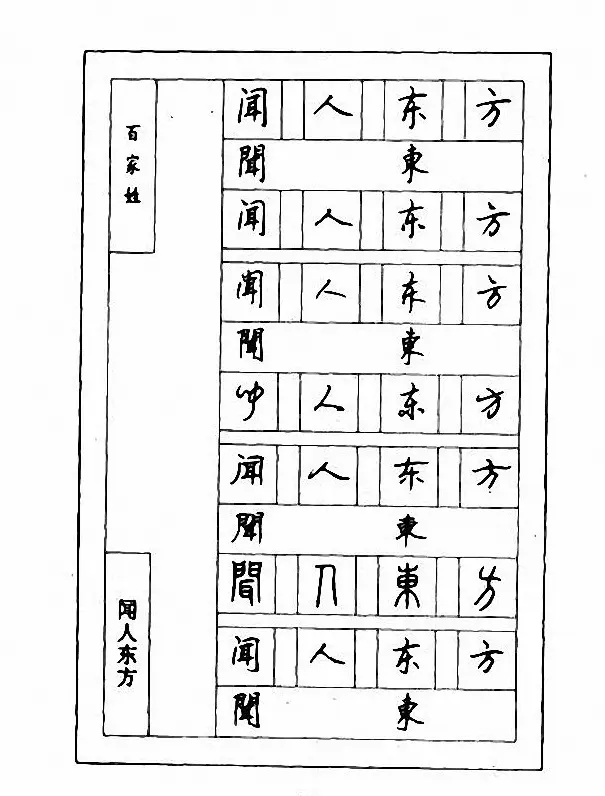 百家姓
闻人东方
闻人东方
聞東
闻人东方
闻人东方
聞東
闻人东方
闻人东方
聞東
聞人東方
闻人东方
聞東